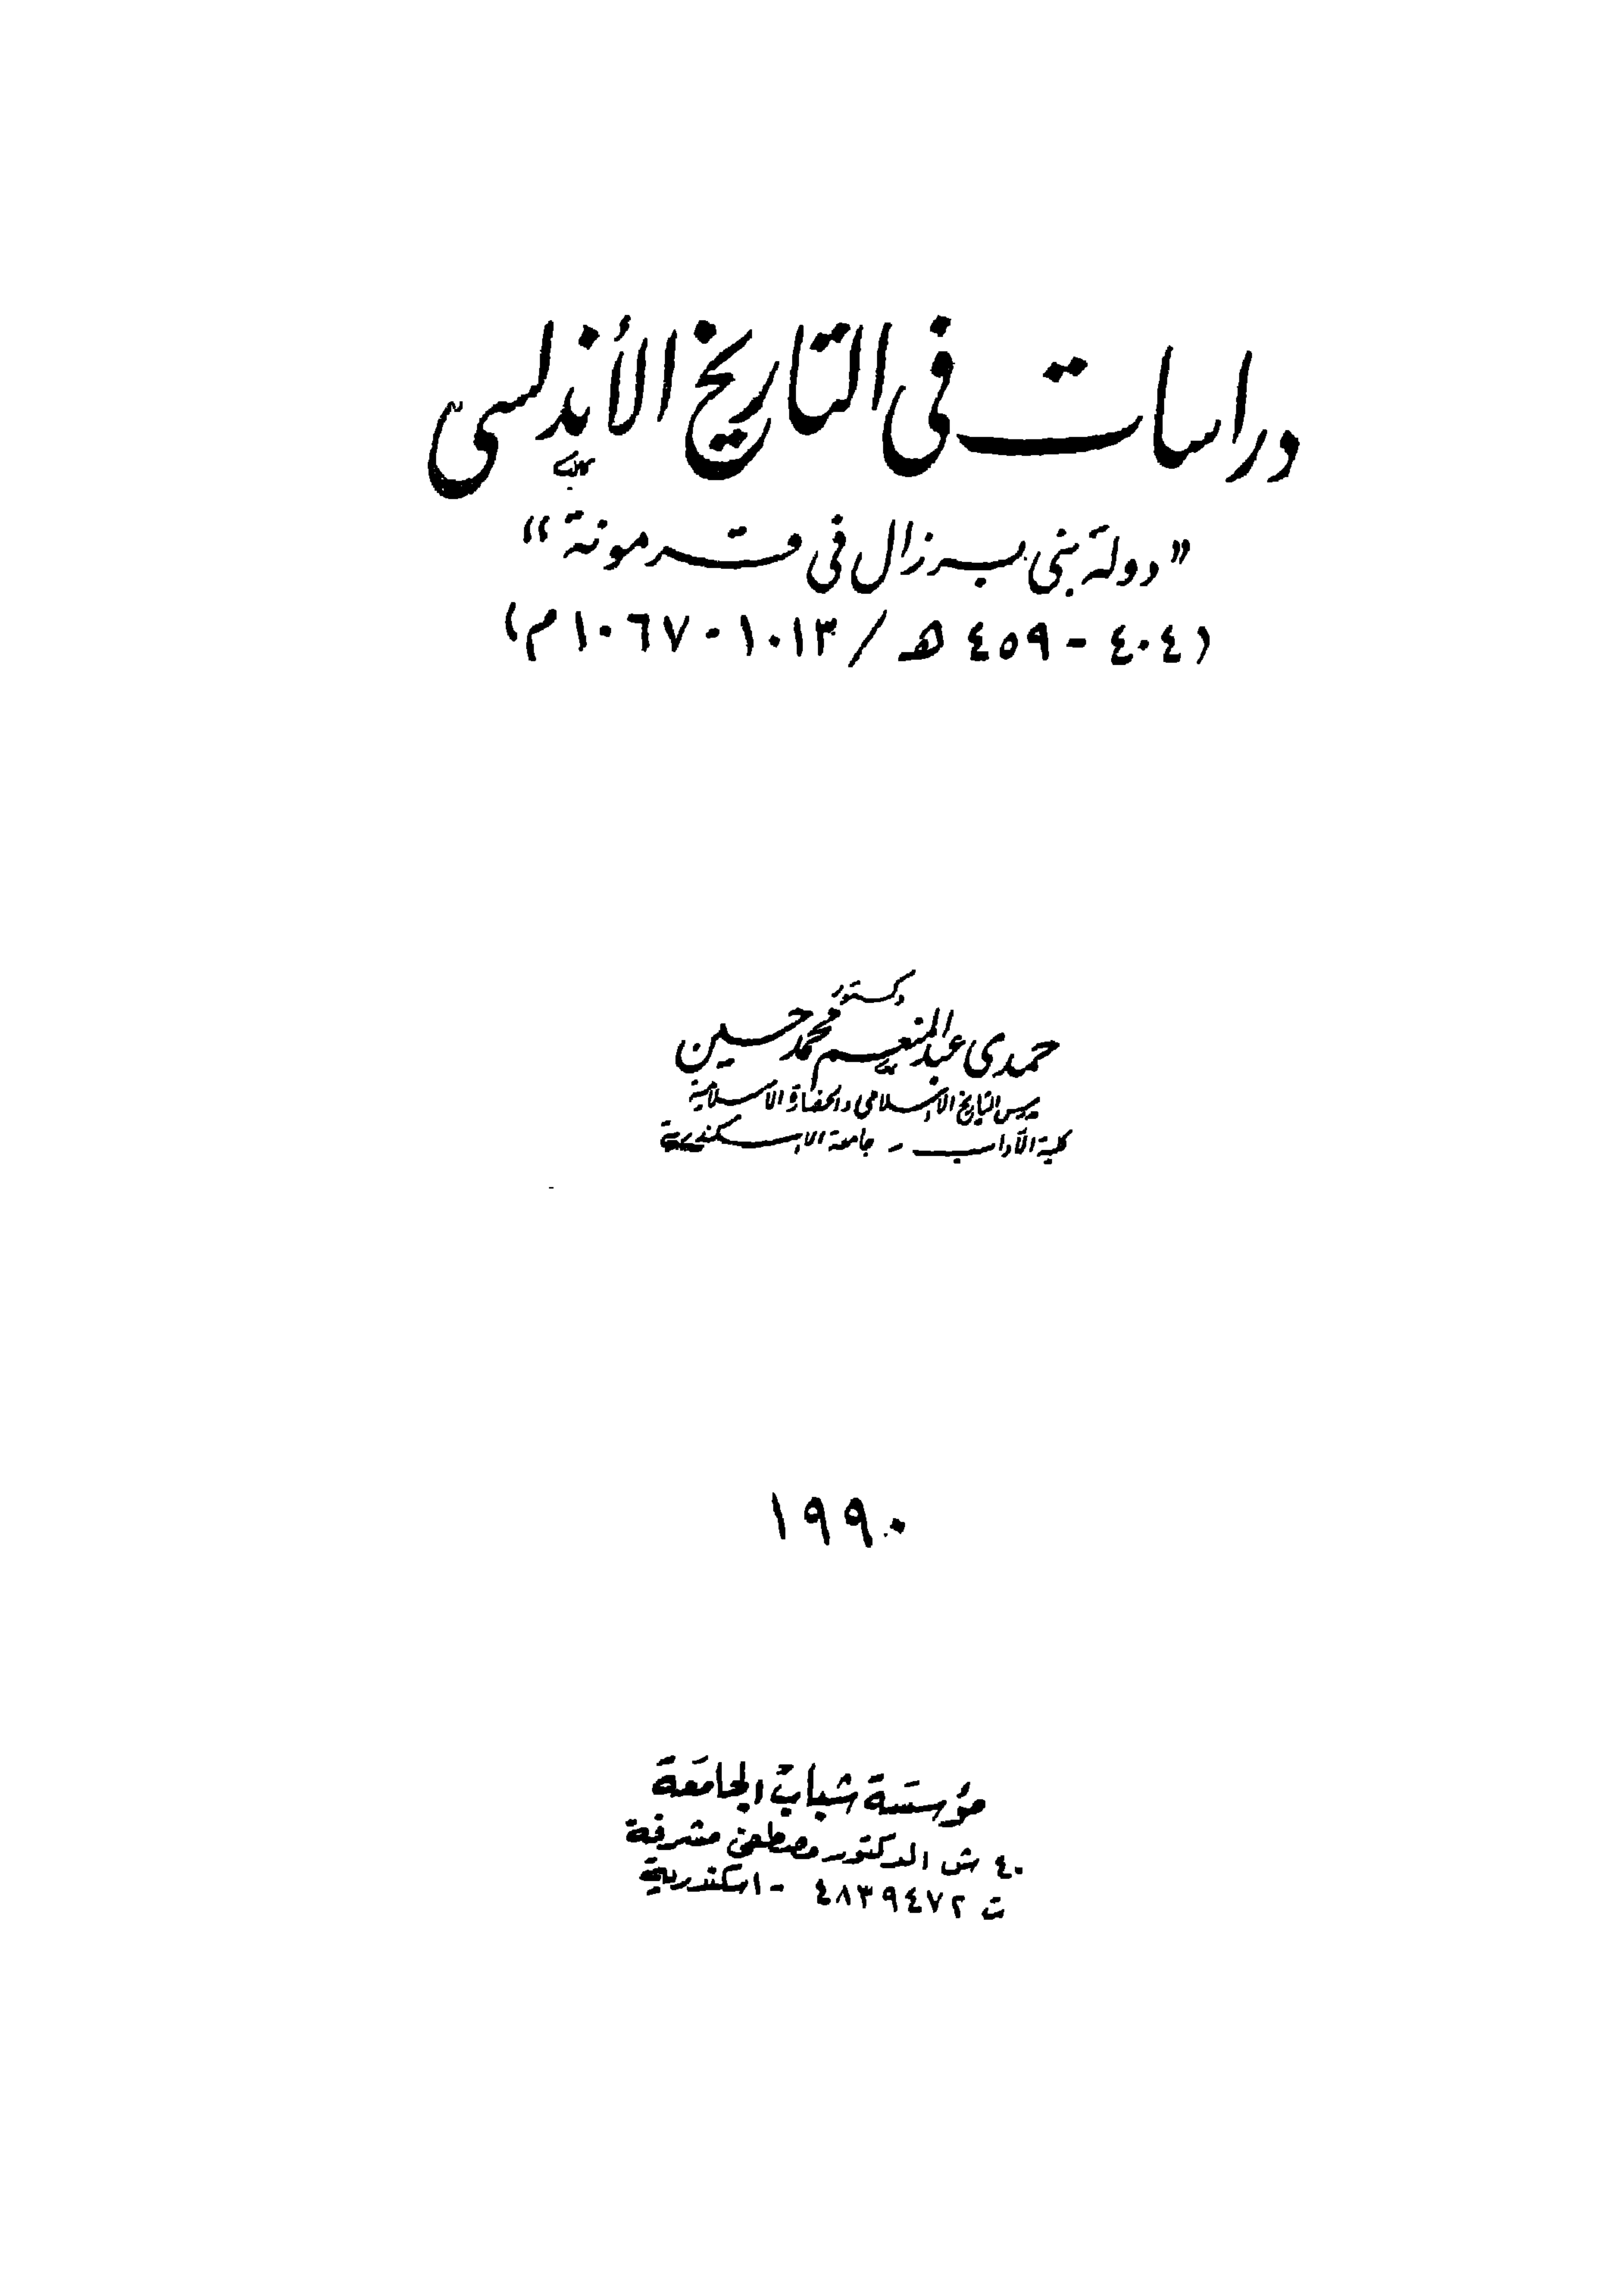 دراسات في التاريخ الأندلسي
"دولة بني برزال في قرمونة"
(٤٠٤ - ٤٥٩ هـ / ١٠١٣ - ١٠٦٧ م)
دكتور
حمدى عبد المنعم محمد حسين
مدرس التاريخ الإسلامى والحضارة الإسلامية
كلية الآداب - جامعة الإسكندرية
١٩٩٠
مؤسسة شباب الجامعة
٤٠ ش الدكتور مصطفى مشرفة
ت ٤٨٣٩٤٧٢ - اسكندرية